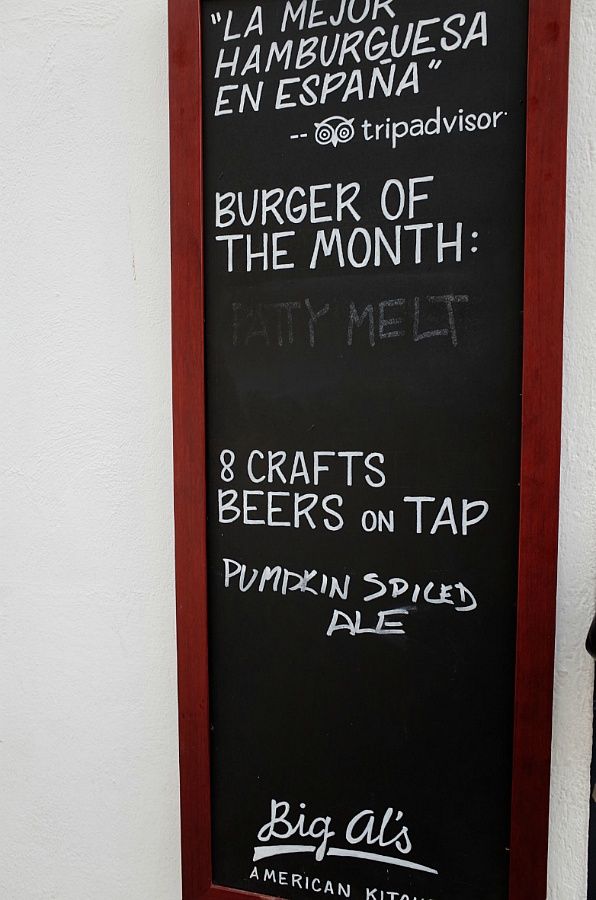 "LA MEJOR
HAMBURGUESA
EN ESPAÑA"
-- tripadvisor
BURGER OF
THE MONTH:
PATTY MELT
8 CRAFTS
BEERS ON TAP
PUMPKIN SPICED
ALE
Big Al's
AMERICAN